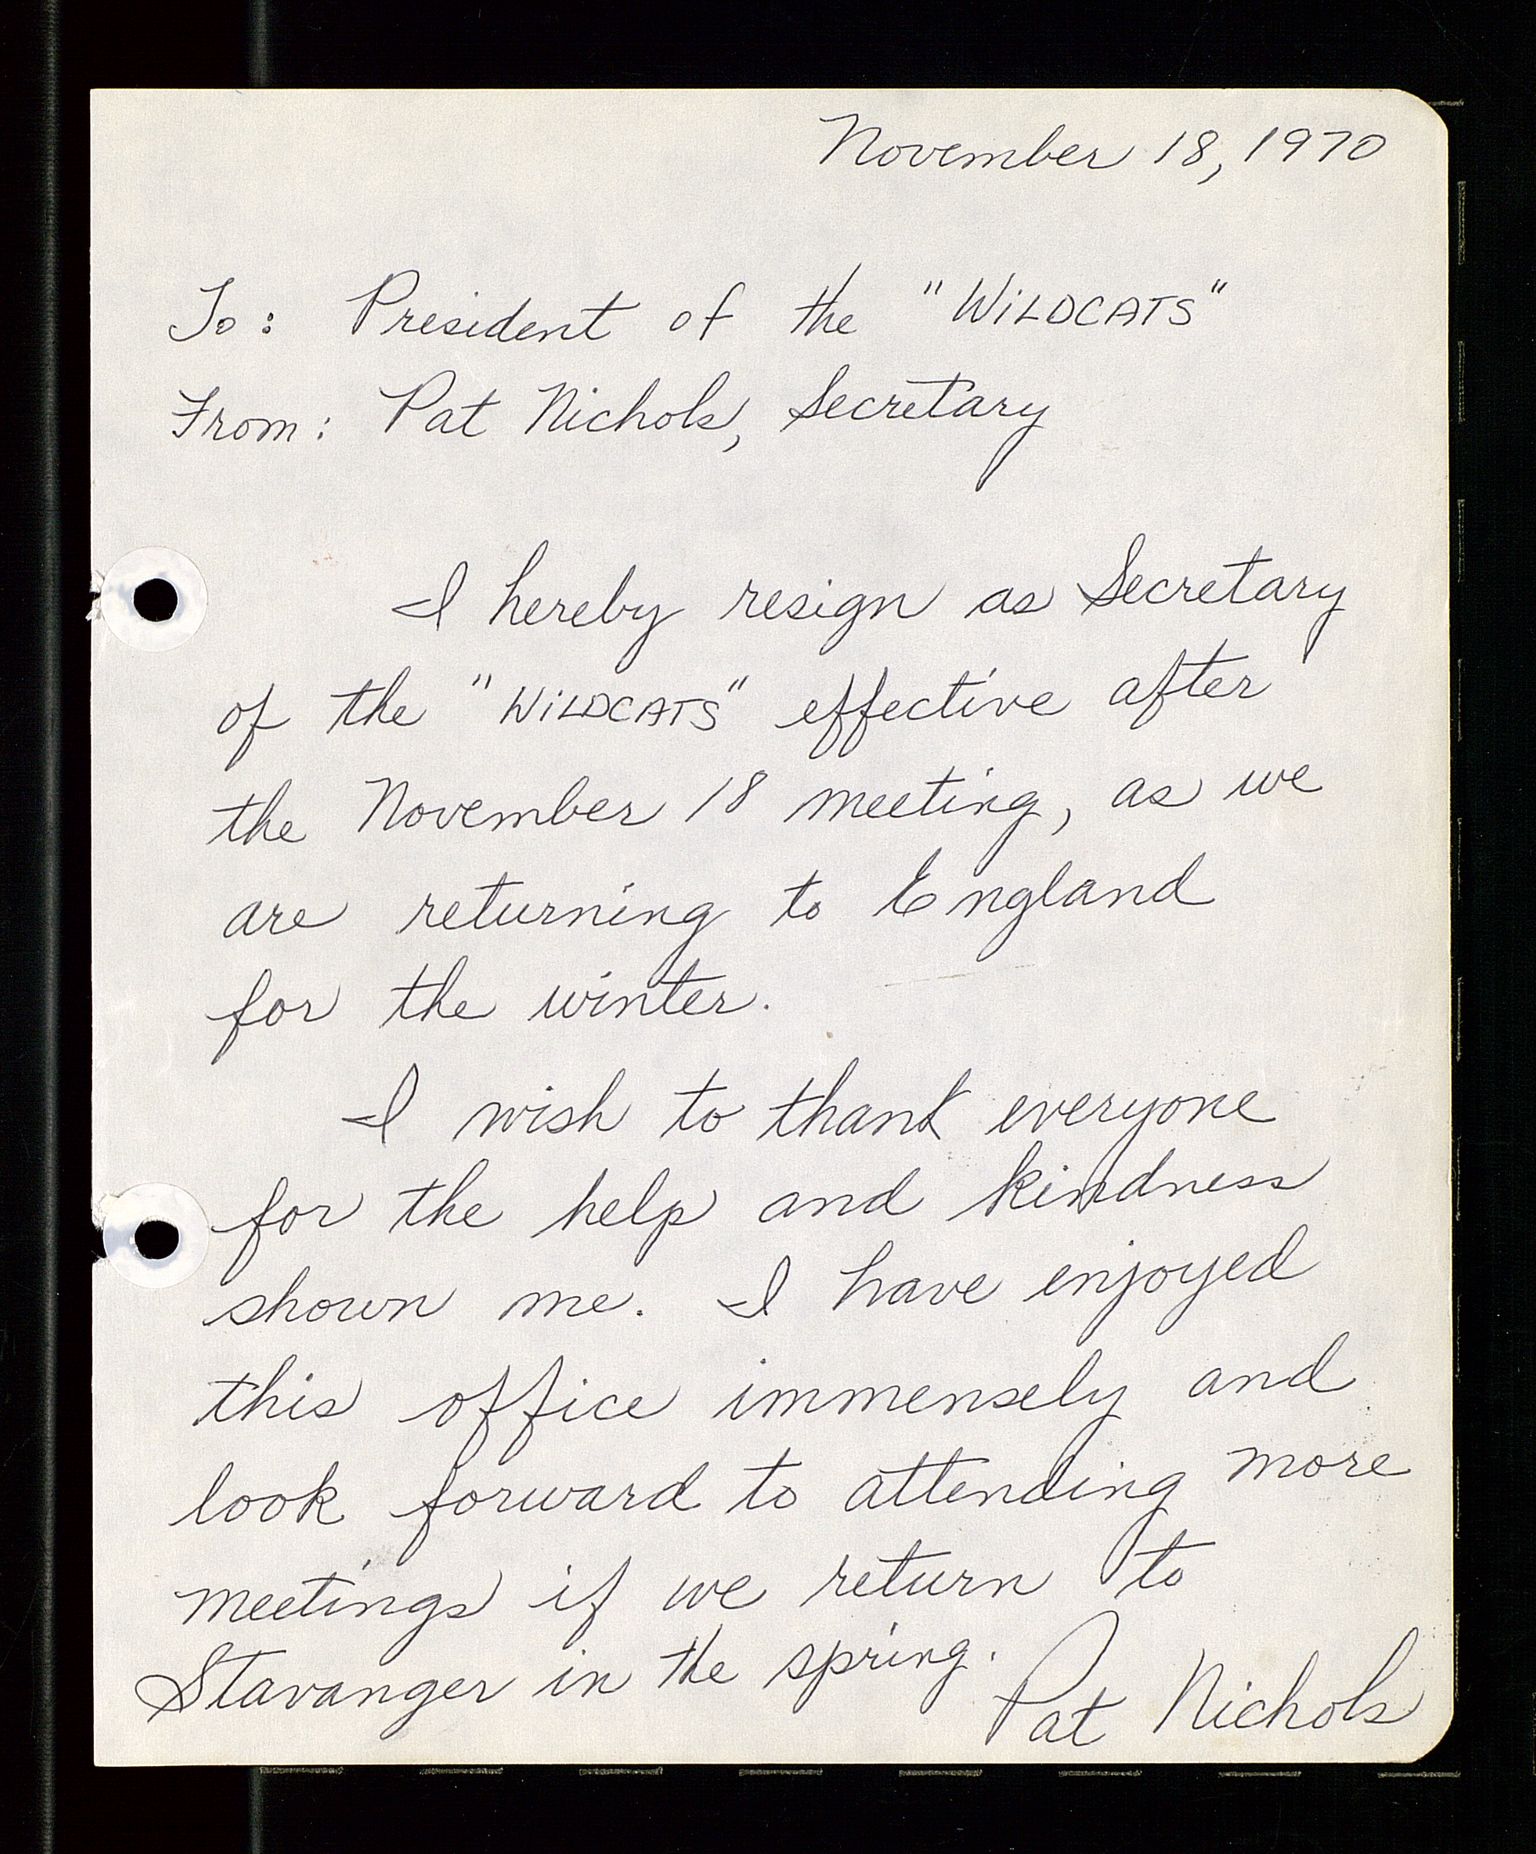 November 18, 1970
To: President of the "WiLDCATS"
From: Pat Nichols, Secretary
I hereby resign as Secretary
of the "WiLDCATS" effective after
the November 18 meeting, as we
are returning to England
for the winter.
I wish to thank everyone
for the help and kindness
shown me. I have enjoyed
this office immensely and
look forward to attending more
meetings if we return to
Stavanger in the spring.
Pat Nichols